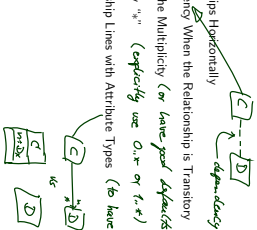 ips Horizontally
dependency
ency When the Relationship is Transitory
he Multiplicity (or have good defaults
y "*" (explicitly use 0..* or 1..*)
hip Lines with Attribute Types (to have
C
D
C
D
C
vs
D